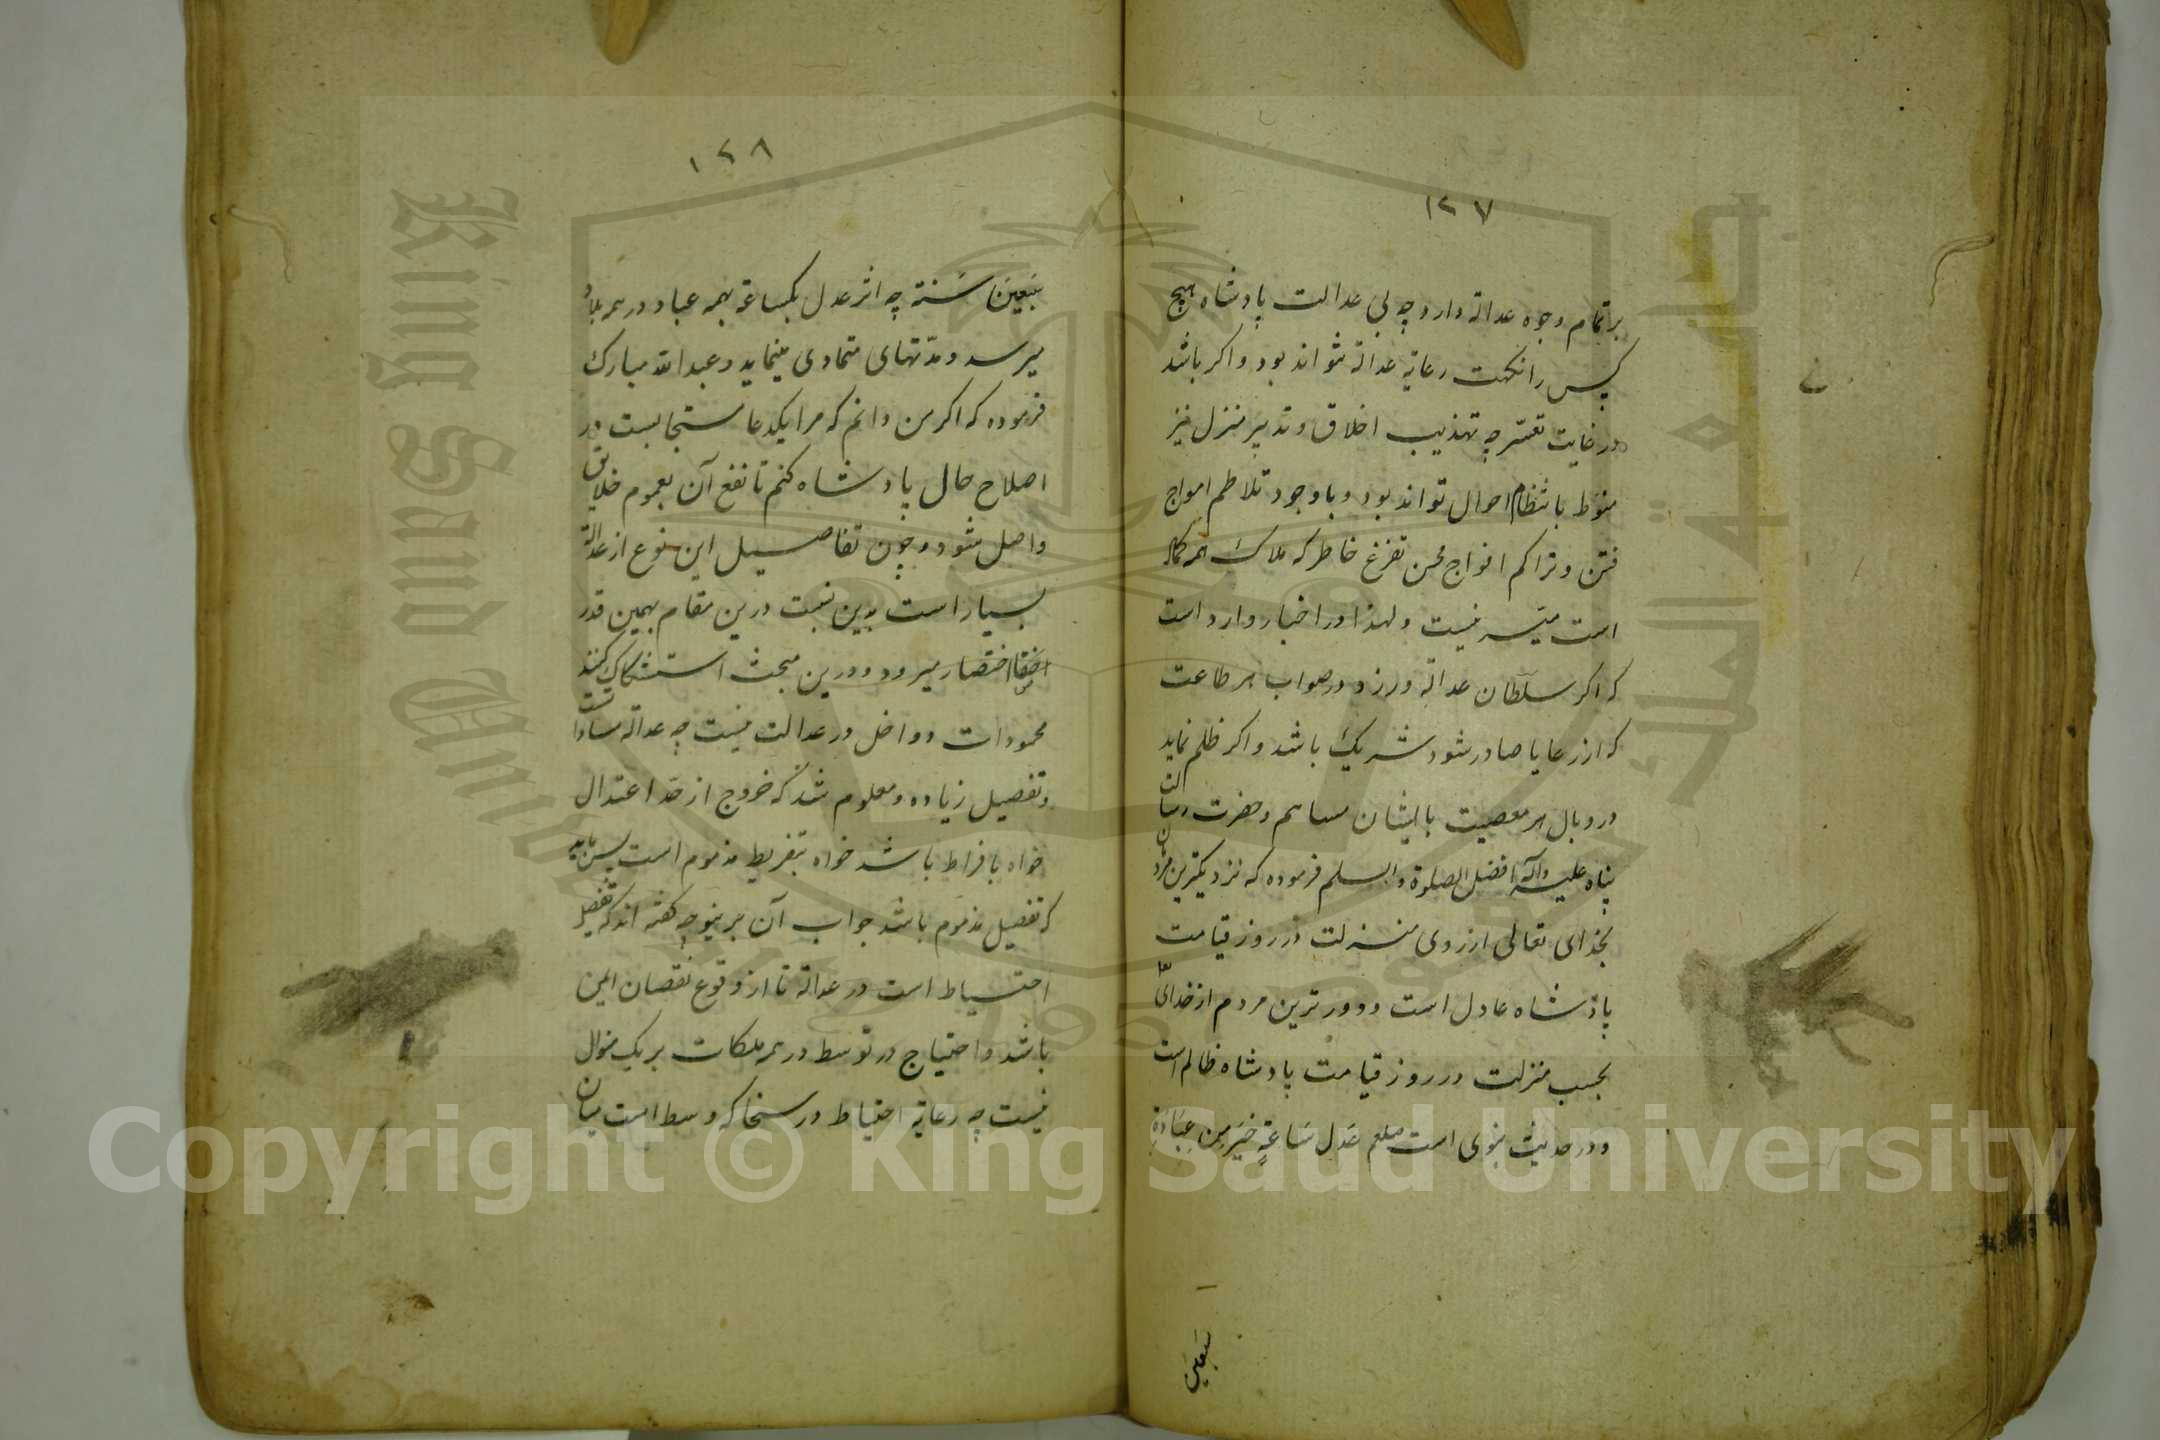 ۱۲۷
بر تمام وجوه عدالة دارد چه بی عدالت پادشاه هیچ
کس را نکهت رعایة عدالة نتواند بود و اکر باشد
در غایت تعسّر چه تهذیب اخلاق و تدبیر منزل نیز
منوط بانتظام احوال تواند بود و با وجود تلاطم امواج
فتن و تراکم افواج محن تفرغ خاطر که ملاک هر کمال
است میسر نیست و لهذا در اخبار وارد است
که اکر سلطان عدالة ورزد در صواب هر طاعت
که از رعایا صادر شود شریک باشد و اکر ظلم نماید
در وبال هر معصیت با ایشان مساهم و حضرت رسالت
پناه علیه وآله افضل الصلوة والسلم فرموده که نزدیکترین مردمان
بخدای تعالی از روی منزلت در روز قیامت
پادشاه عادل است و دورترین مردم از خدای تعالی
بحسب منزلت در روز قیامت پادشاه ظالم است
و در حدیث نبوی است صلعم عدل ساعةٍ خیر من عبادة
سبعین
۱۲۸
سبعین سنة چه اثر عدل یکساعة بهمه عباد در همه بلاد
میرسد و مدّتهای متمادی مینماید و عبد الله مبارک
فرموده که اکر من دانم که مرا یکدعا مستجابست در
اصلاح حال پادشاه کنم تا نفع آن بعموم خلایق
واصل شود و چون تفاصیل این نوع از عدالة
بسیار است بدین نسبت درین مقام بهمین قدر
اختصار میرود و درین مبحث استشکال کنند
محمودات و داخل در عدالت نیست چه عدالة مساوات
و تفصیل زیاده و معلوم شد که خروج از حدّ اعتدال
خواه بافراط باشد خواه بتفریط مذموم است پس باید
که تفصیل مذموم باشد جواب آن برینوجه کفته اند که تفضل
احتیاط است در عدالة تا از وقوع نقصان ایمن
باشد و احتیاج در توسط در همه ملکات بر یک منوال
نیست چه رعایة احتیاط در سخا که وسط است میان
King Saud University
1957
Copyright © King Saud University